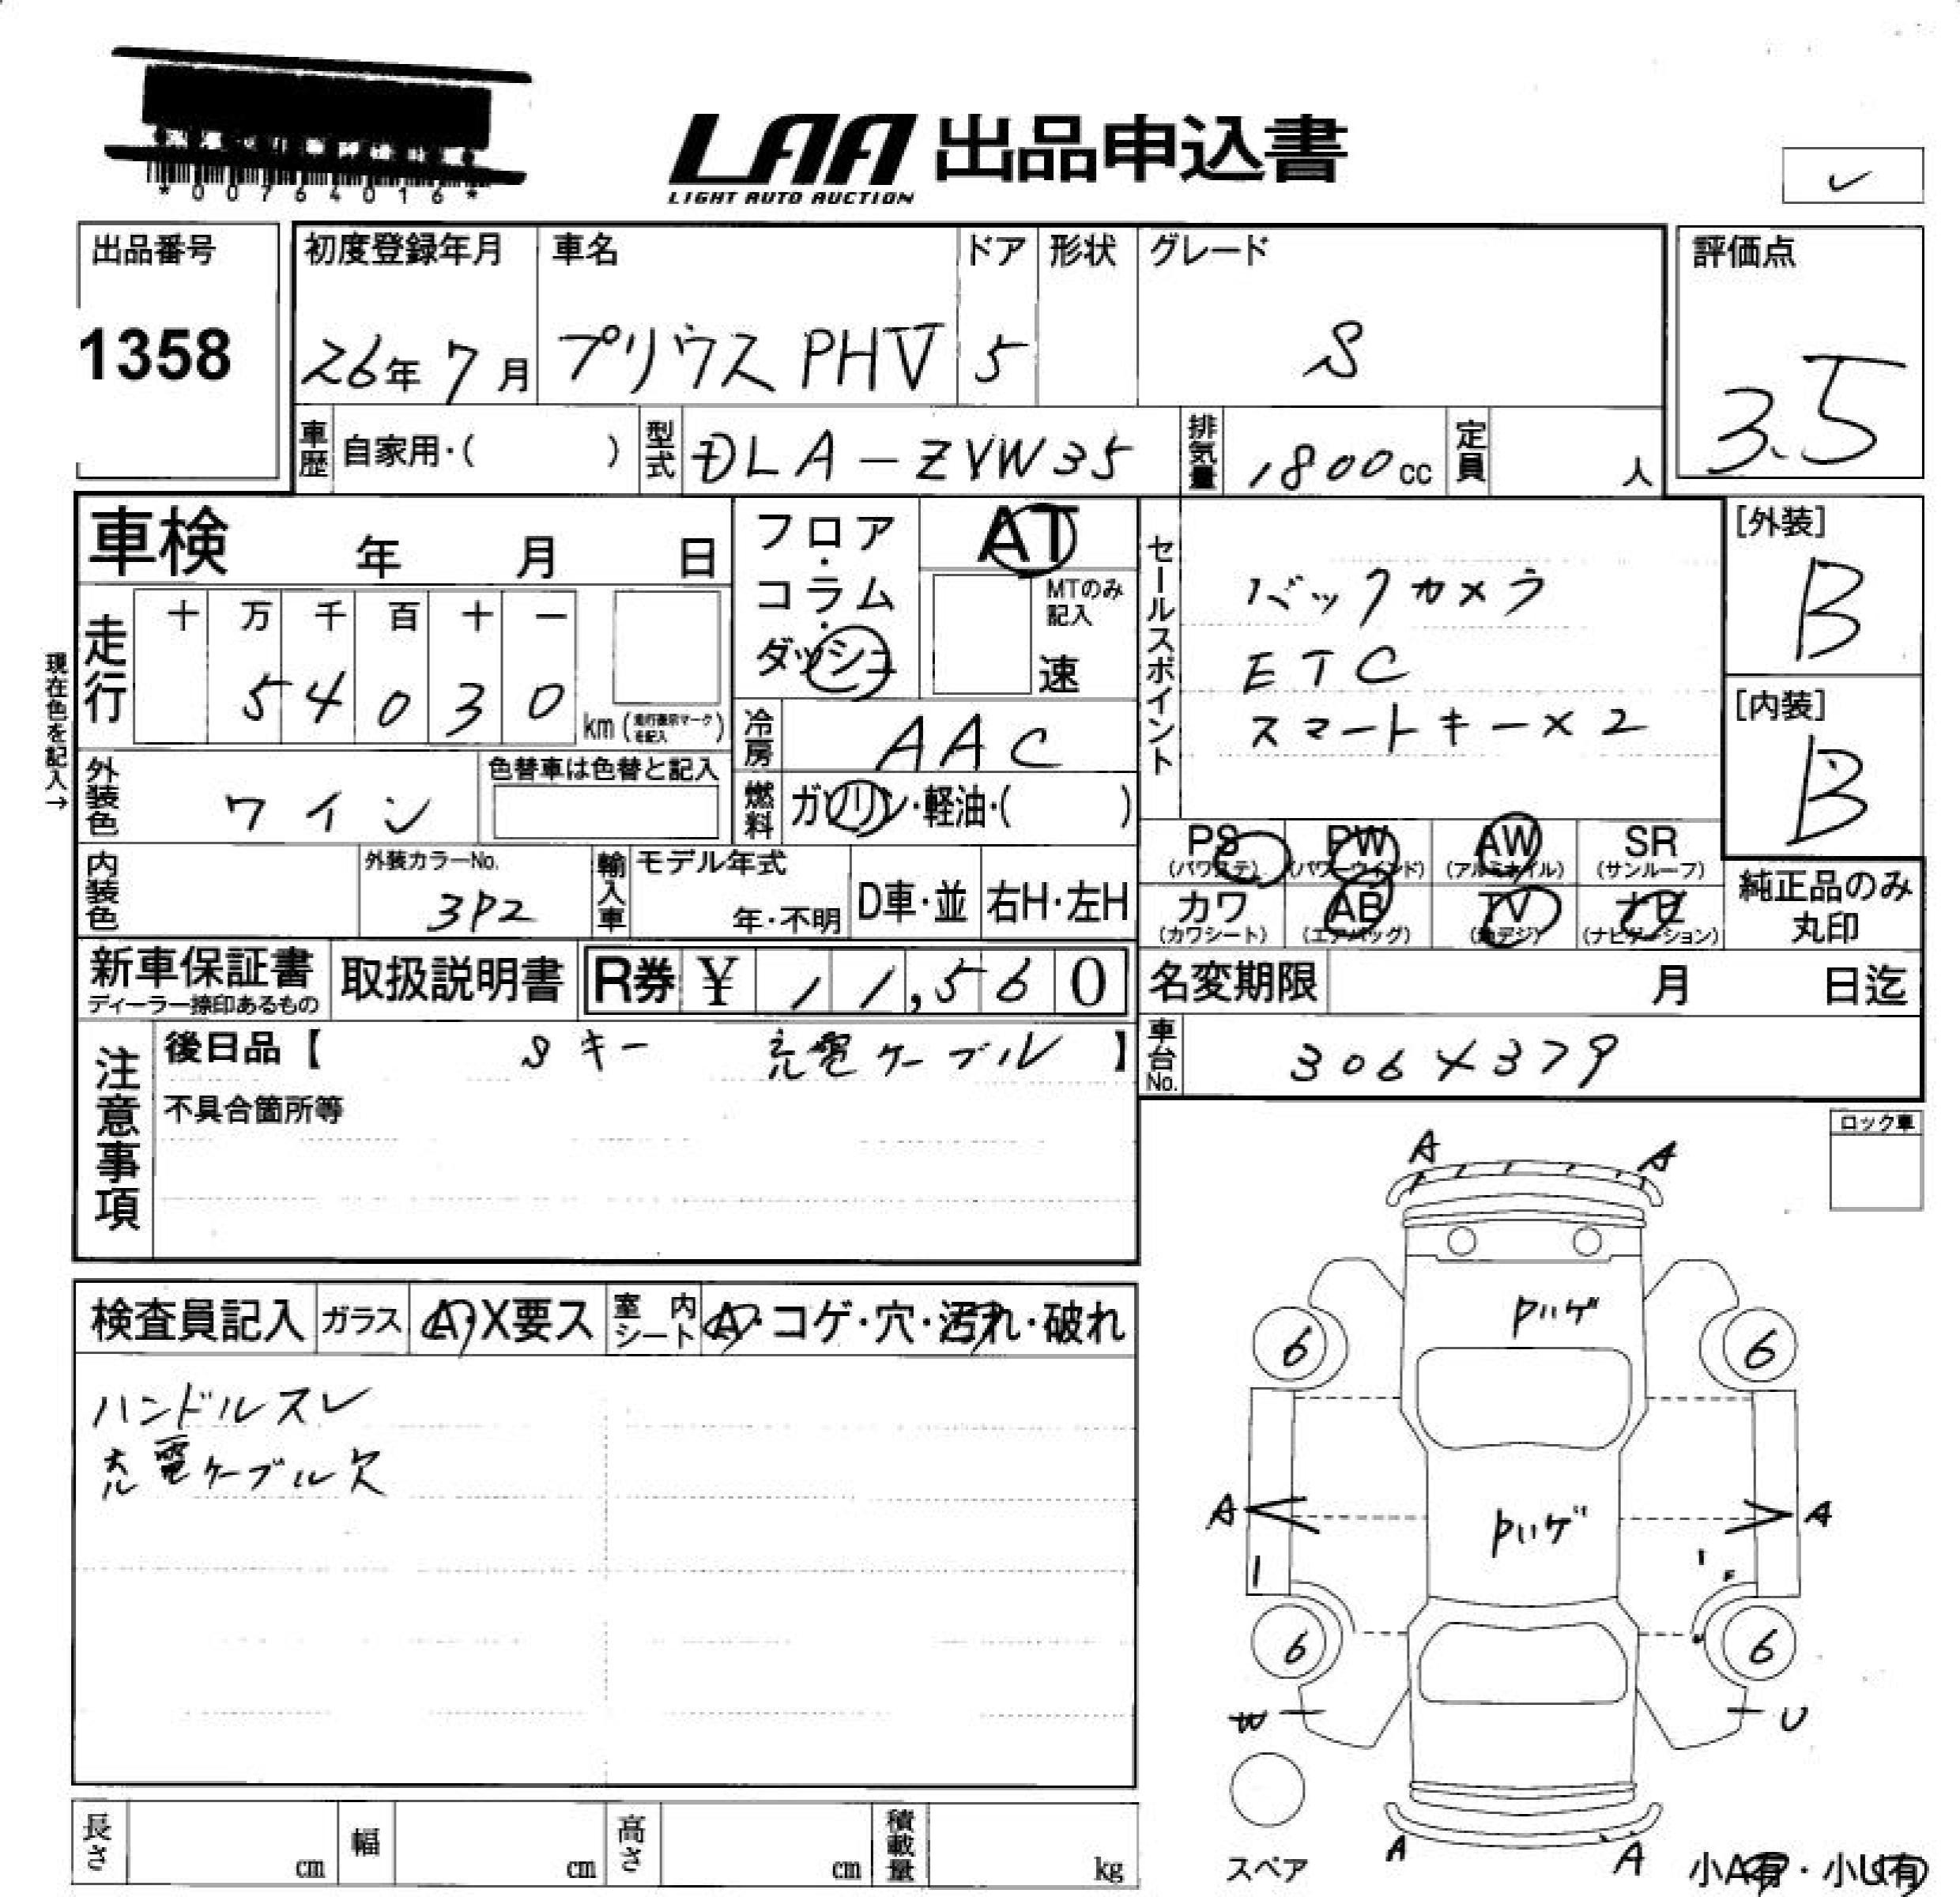 *00764016*
LAA 出品申込書
LIGHT AUTO AUCTION
出品番号 初度登録年月 車名 ドア 形状 グレード 評価点
1358 26年 7月 プリウス PHV 5 S 3.5
車歴 自家用・( ) 型式 DLA-ZVW35 排気量 1800cc 定員 人
車検 年 月 日 フロア・コラム・ダッシュ AT
MTのみ記入 速
セールスポイント
バックカメラ
ETC
スマートキー×2
[外装] B
[内装] B
現在色を記入→
走行 十 万 千 百 十 一
5 4 0 3 0 km (走行表示マークを記入)
冷房 AAC
外装色 ワイン 色替車は色替と記入
燃料 ガソリン・軽油・( )
内装色 外装カラーNo. 3P2 輸入車 モデル年式 年・不明 D車・並 右H・左H
PS (パワステ) PW (パワーウインド) AW (アルミホイル) SR (サンルーフ)
カワ (カワシート) AB (エアバッグ) TV (地デジ) ナビ (ナビゲーション)
純正品のみ丸印
新車保証書 ディーラー捺印あるもの 取扱説明書 R券 ¥ 11,560
名変期限 月 日迄
注意事項
後日品【 Sキー 充電ケーブル 】
車台No. 3064379
不具合箇所等
ロック車
検査員記入 ガラス A・X要ス 室内シート A・コゲ・穴・汚れ・破れ
ハンドルスレ
充電ケーブル欠
A A
Pハゲ
6 6
A Pハゲ A
6 6
W U
スペア
A A
小A有・小U有
長さ cm 幅 cm 高さ cm 積載量 kg